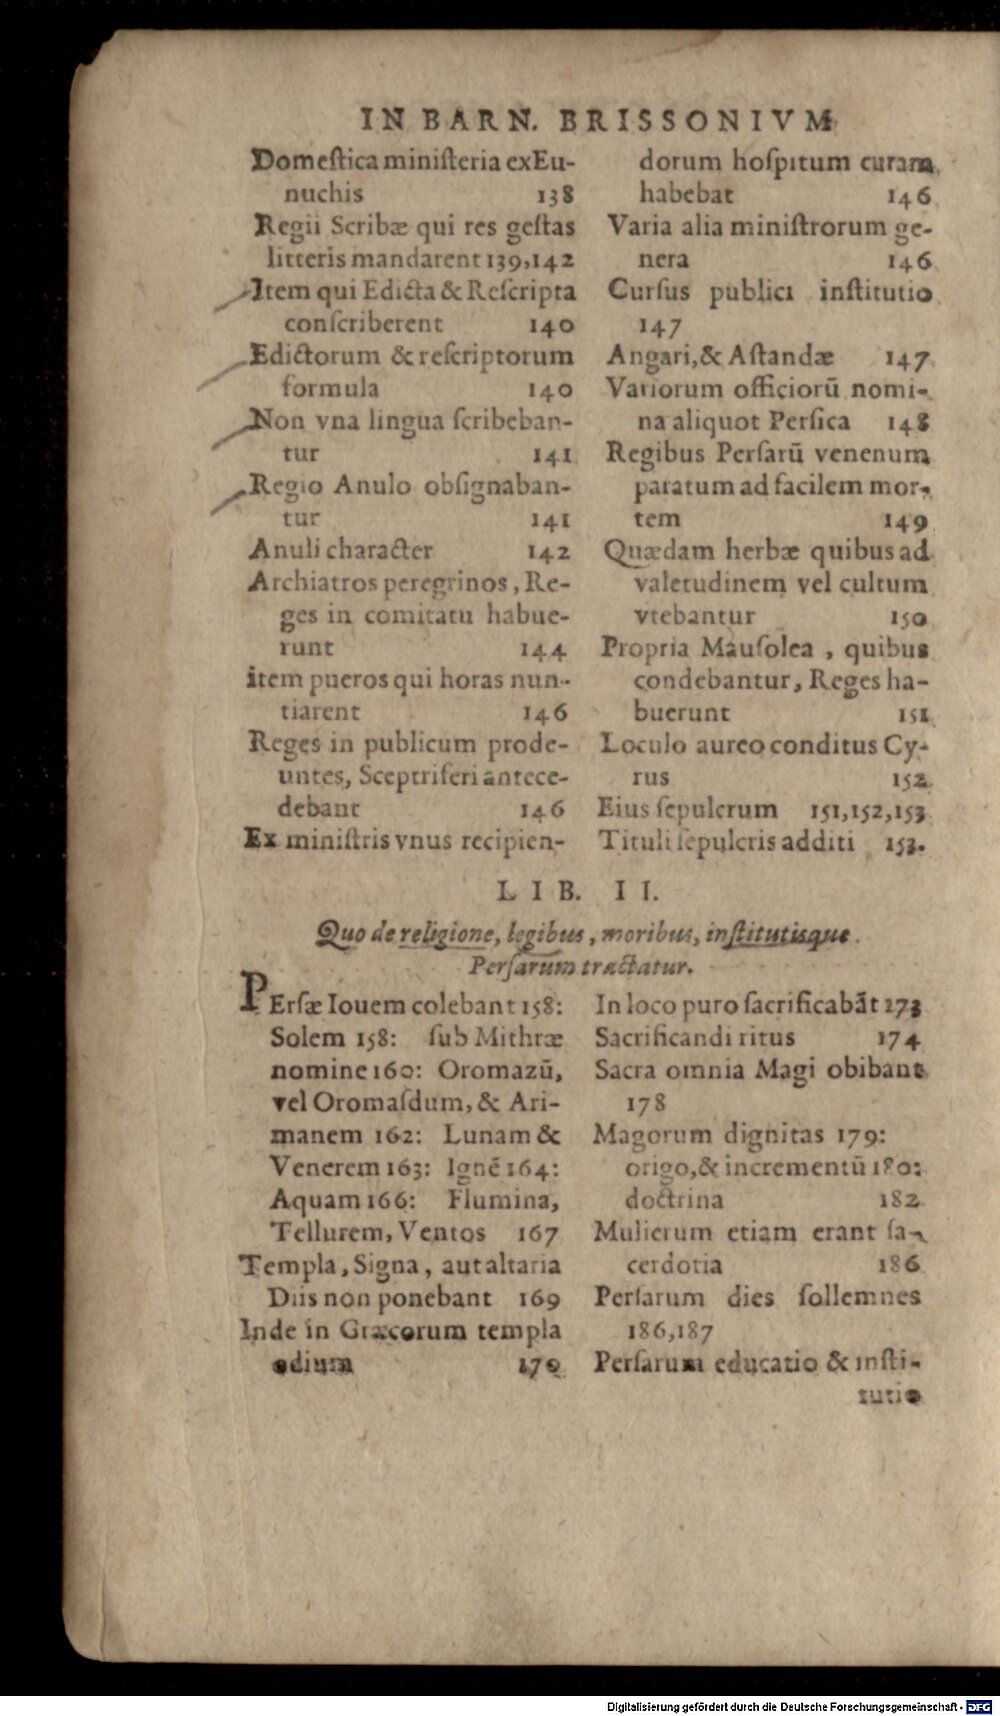 IN BARN. BRISSONIVM
Domeſtica miniſteria ex Eu-
nuchis 138
Regii Scribæ qui res geſtas
litteris mandarent 139,142
Item qui Edicta & Reſcripta
conſcriberent 140
Edictorum & reſcriptorum
formula 140
Non vna lingua ſcribeban-
tur 141
Regio Anulo obſignaban-
tur 141
Anuli character 142
Archiatros peregrinos, Re-
ges in comitatu habue-
runt 144
item pueros qui horas nun-
tiarent 146
Reges in publicum prode-
untes, Sceptriferi antece-
debant 146
Ex miniſtris vnus recipien-
dorum hoſpitum curam
habebat 146
Varia alia miniſtrorum ge-
nera 146
Curſus publici inſtitutio
147
Angari, & Aſtandæ 147
Variorum officiorū nomi-
na aliquot Perſica 148
Regibus Perſarū venenum
paratum ad facilem mor-
tem 149
Quædam herbæ quibus ad
valetudinem vel cultum
vtebantur 150
Propria Mauſolea, quibus
condebantur, Reges ha-
buerunt 151
Loculo aureo conditus Cy-
rus 152
Eius ſepulcrum 151,152,153
Tituli ſepulcris additi 153.
LIB. II.
Quo de religione, legibus, moribus, inſtitutisque
Perſarum tractatur.
PErſæ Iouem colebant 158:
Solem 158: ſub Mithræ
nomine 160: Oromazū,
vel Oromaſdum, & Ari-
manem 162: Lunam &
Venerem 163: Ignē 164:
Aquam 166: Flumina,
Tellurem, Ventos 167
Templa, Signa, aut altaria
Diis non ponebant 169
Inde in Græcorum templa
odium 170
In loco puro ſacrificabāt 173
Sacrificandi ritus 174
Sacra omnia Magi obibant
178
Magorum dignitas 179:
origo, & incrementū 180:
doctrina 182
Mulierum etiam erant ſa-
cerdotia 186
Perſarum dies ſollemnes
186,187
Perſarum educatio & inſti-
tutio
Digitalisierung gefördert durch die Deutsche Forschungsgemeinschaft - DFG